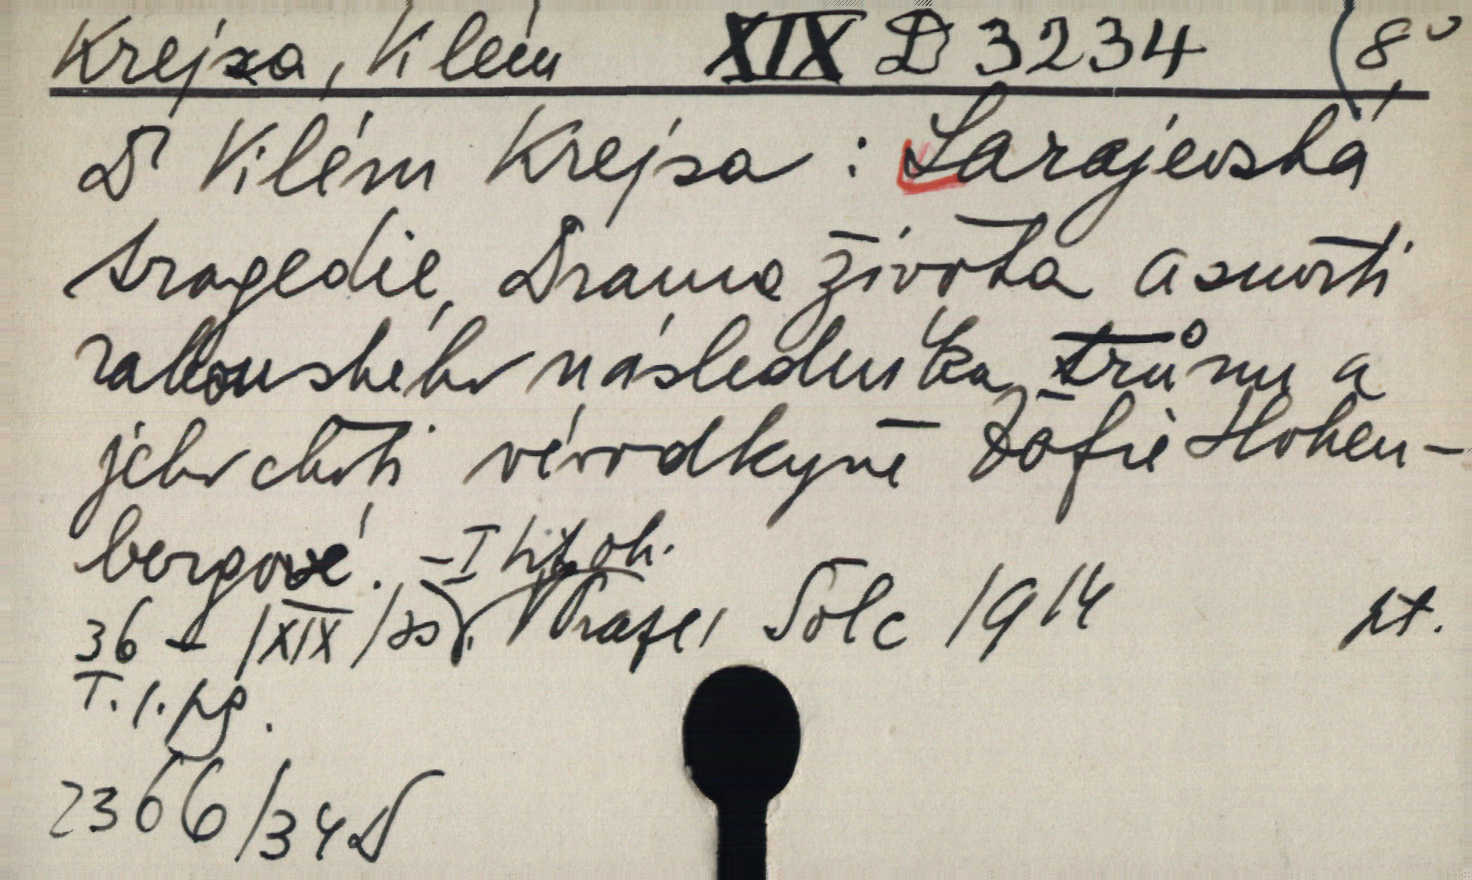 Krejsa, Vilém XIX D 3234 (8°
Dr Vilém Krejsa: Sarajevská
tragedie, Drama života a smrti
rakouského následníka trůnu a
jeho choti vévodkyně Žofie Hohen-
bergové. - I tit. ob.
36 - /XIX/ V Praze, Šolc 1914 pt.
T. 1. pg.
2366/34 D